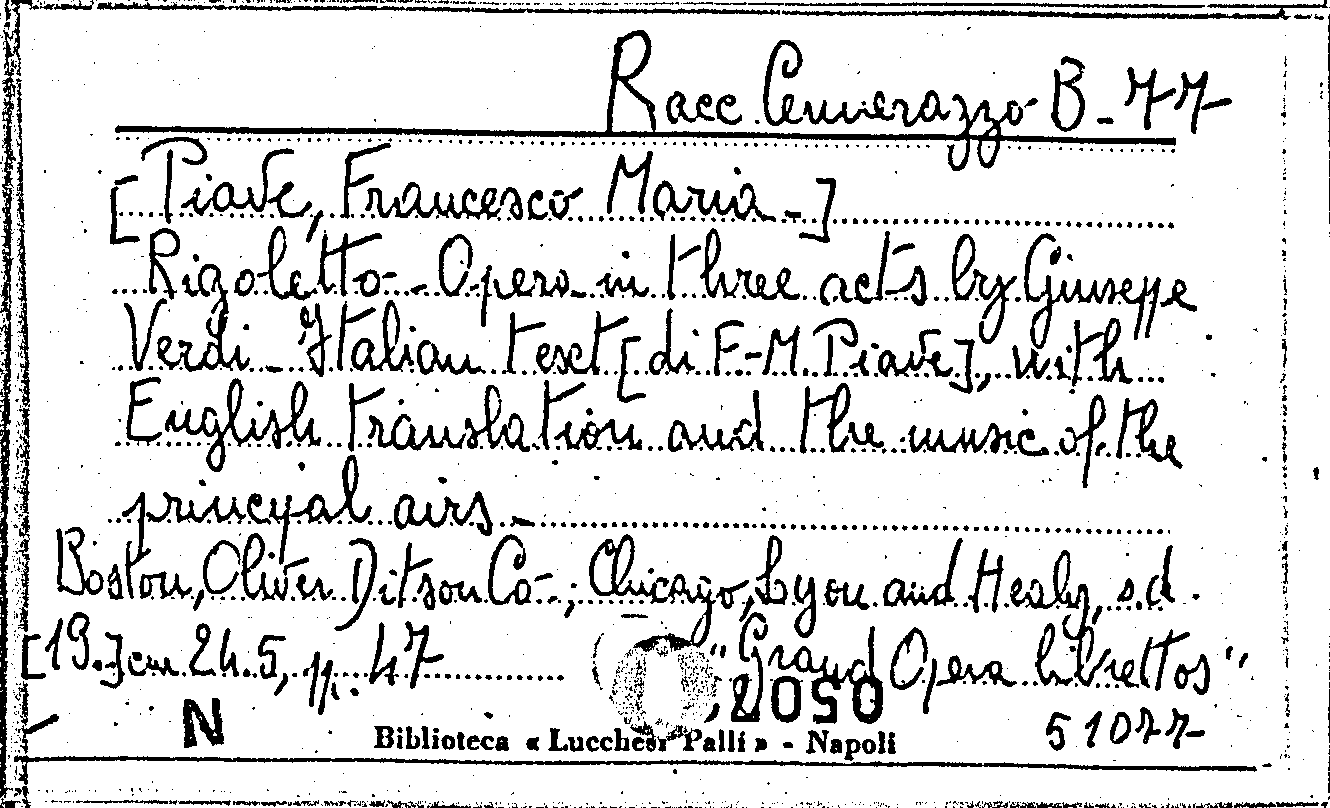 Racc. Cennerazzo B-77
[Piave, Francesco Maria-]
Rigoletto - Opera in three acts by Giuseppe
Verdi - Italian text [di F-M. Piave], with
English translation and the music of the
principal airs -
Boston, Oliver Ditson Co-; Chicago, Lyon and Healy, s.d.
[19.] cm 24.5, pp. 47 "Grand Opera librettos"
N 51077
Biblioteca « Lucchesi Palli » - Napoli